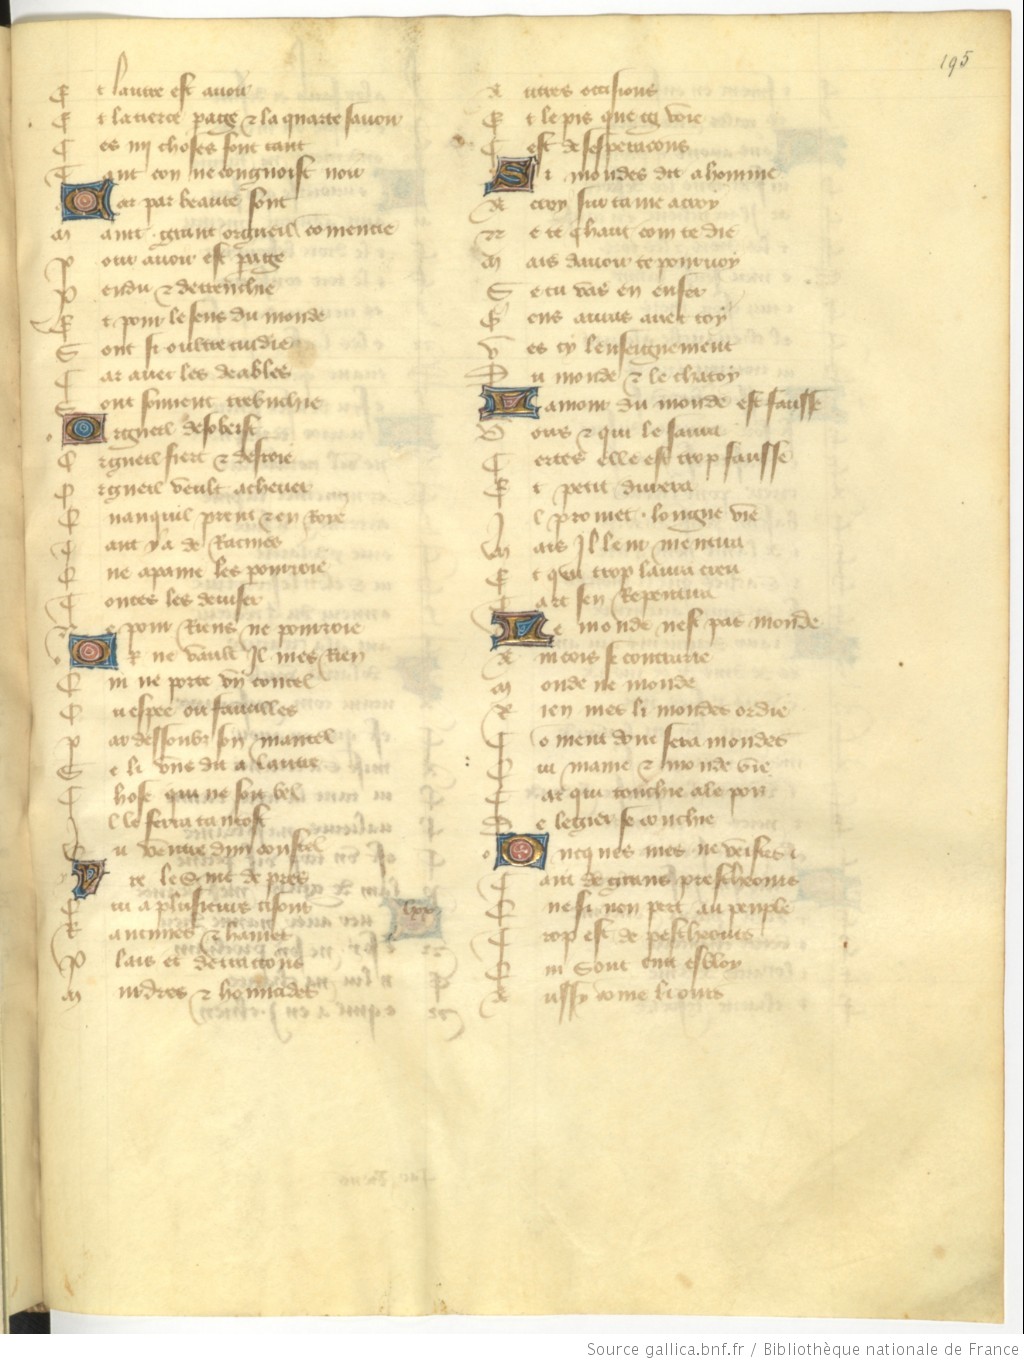 195
Et lautre est auoir
Et la tierce parage & la quarte sauoir
Ces iiij choses font tant
Tant con ne congnoist nour
Car par beaute sont
Maint grant orgueil comencie
Pour auoir est parage
Perdu & detrenchie
Et pour le sens du monde
Sont si oultrecuidie
Car auec les deables
Sont souuent trebuchie
Orgueil desobeist
Orgueil fiert & desroie
Orgueil veult acheuer
En ... prent & en Roye
Tant y a de Racines
Que a paine les pourroie
Toutes les deuiser
Ne pour Riens ne pourroie
Or ne vault Il mes Rien
Qui ne porte vng coutel
Ou espee ou
Par dessoubz son mantel
Se li vns dit a lautre
Chose qui ne soit bel
Il le ferra tantost
Du ventre dun coustel
Ire le Suit de pres
Qui a plusieurs tisons
Rancunes & haines
Plais et detractions
Murdres & homicides
Autres occisions
Et le pis que gy voie
Cest desesperacons
Si mondes dit a homme
Acroy sur tame acroy
Ne te chaut com te die
Mais dauoir te pouruoy
Se tu vas en enfer
Gens auras auec toy
Ves cy lenseignement
Du monde & le chatoy
Lamour du monde est fausse
Vous & qui le saura
Certes elle est trop fausse
Et petit durera
Il promet longue vie
Mais Il leur mentira
Et qui trop laura creu
Tart sen Repentira
Le monde nest pas monde
Aincois se contrarie
Monde ne monde
Rien mes li mondes ordie
Coment dont sera mondes
Qui maine & monde vie
Car qui touche a le poiz
De legier se conchie
Oncques mes ne veistes
Tant de grans prescheours
Ne si non pert au peuple
Trop est de pescheours
Qui Sont
Aussy come li ours
Source gallica.bnf.fr / Bibliothèque nationale de France